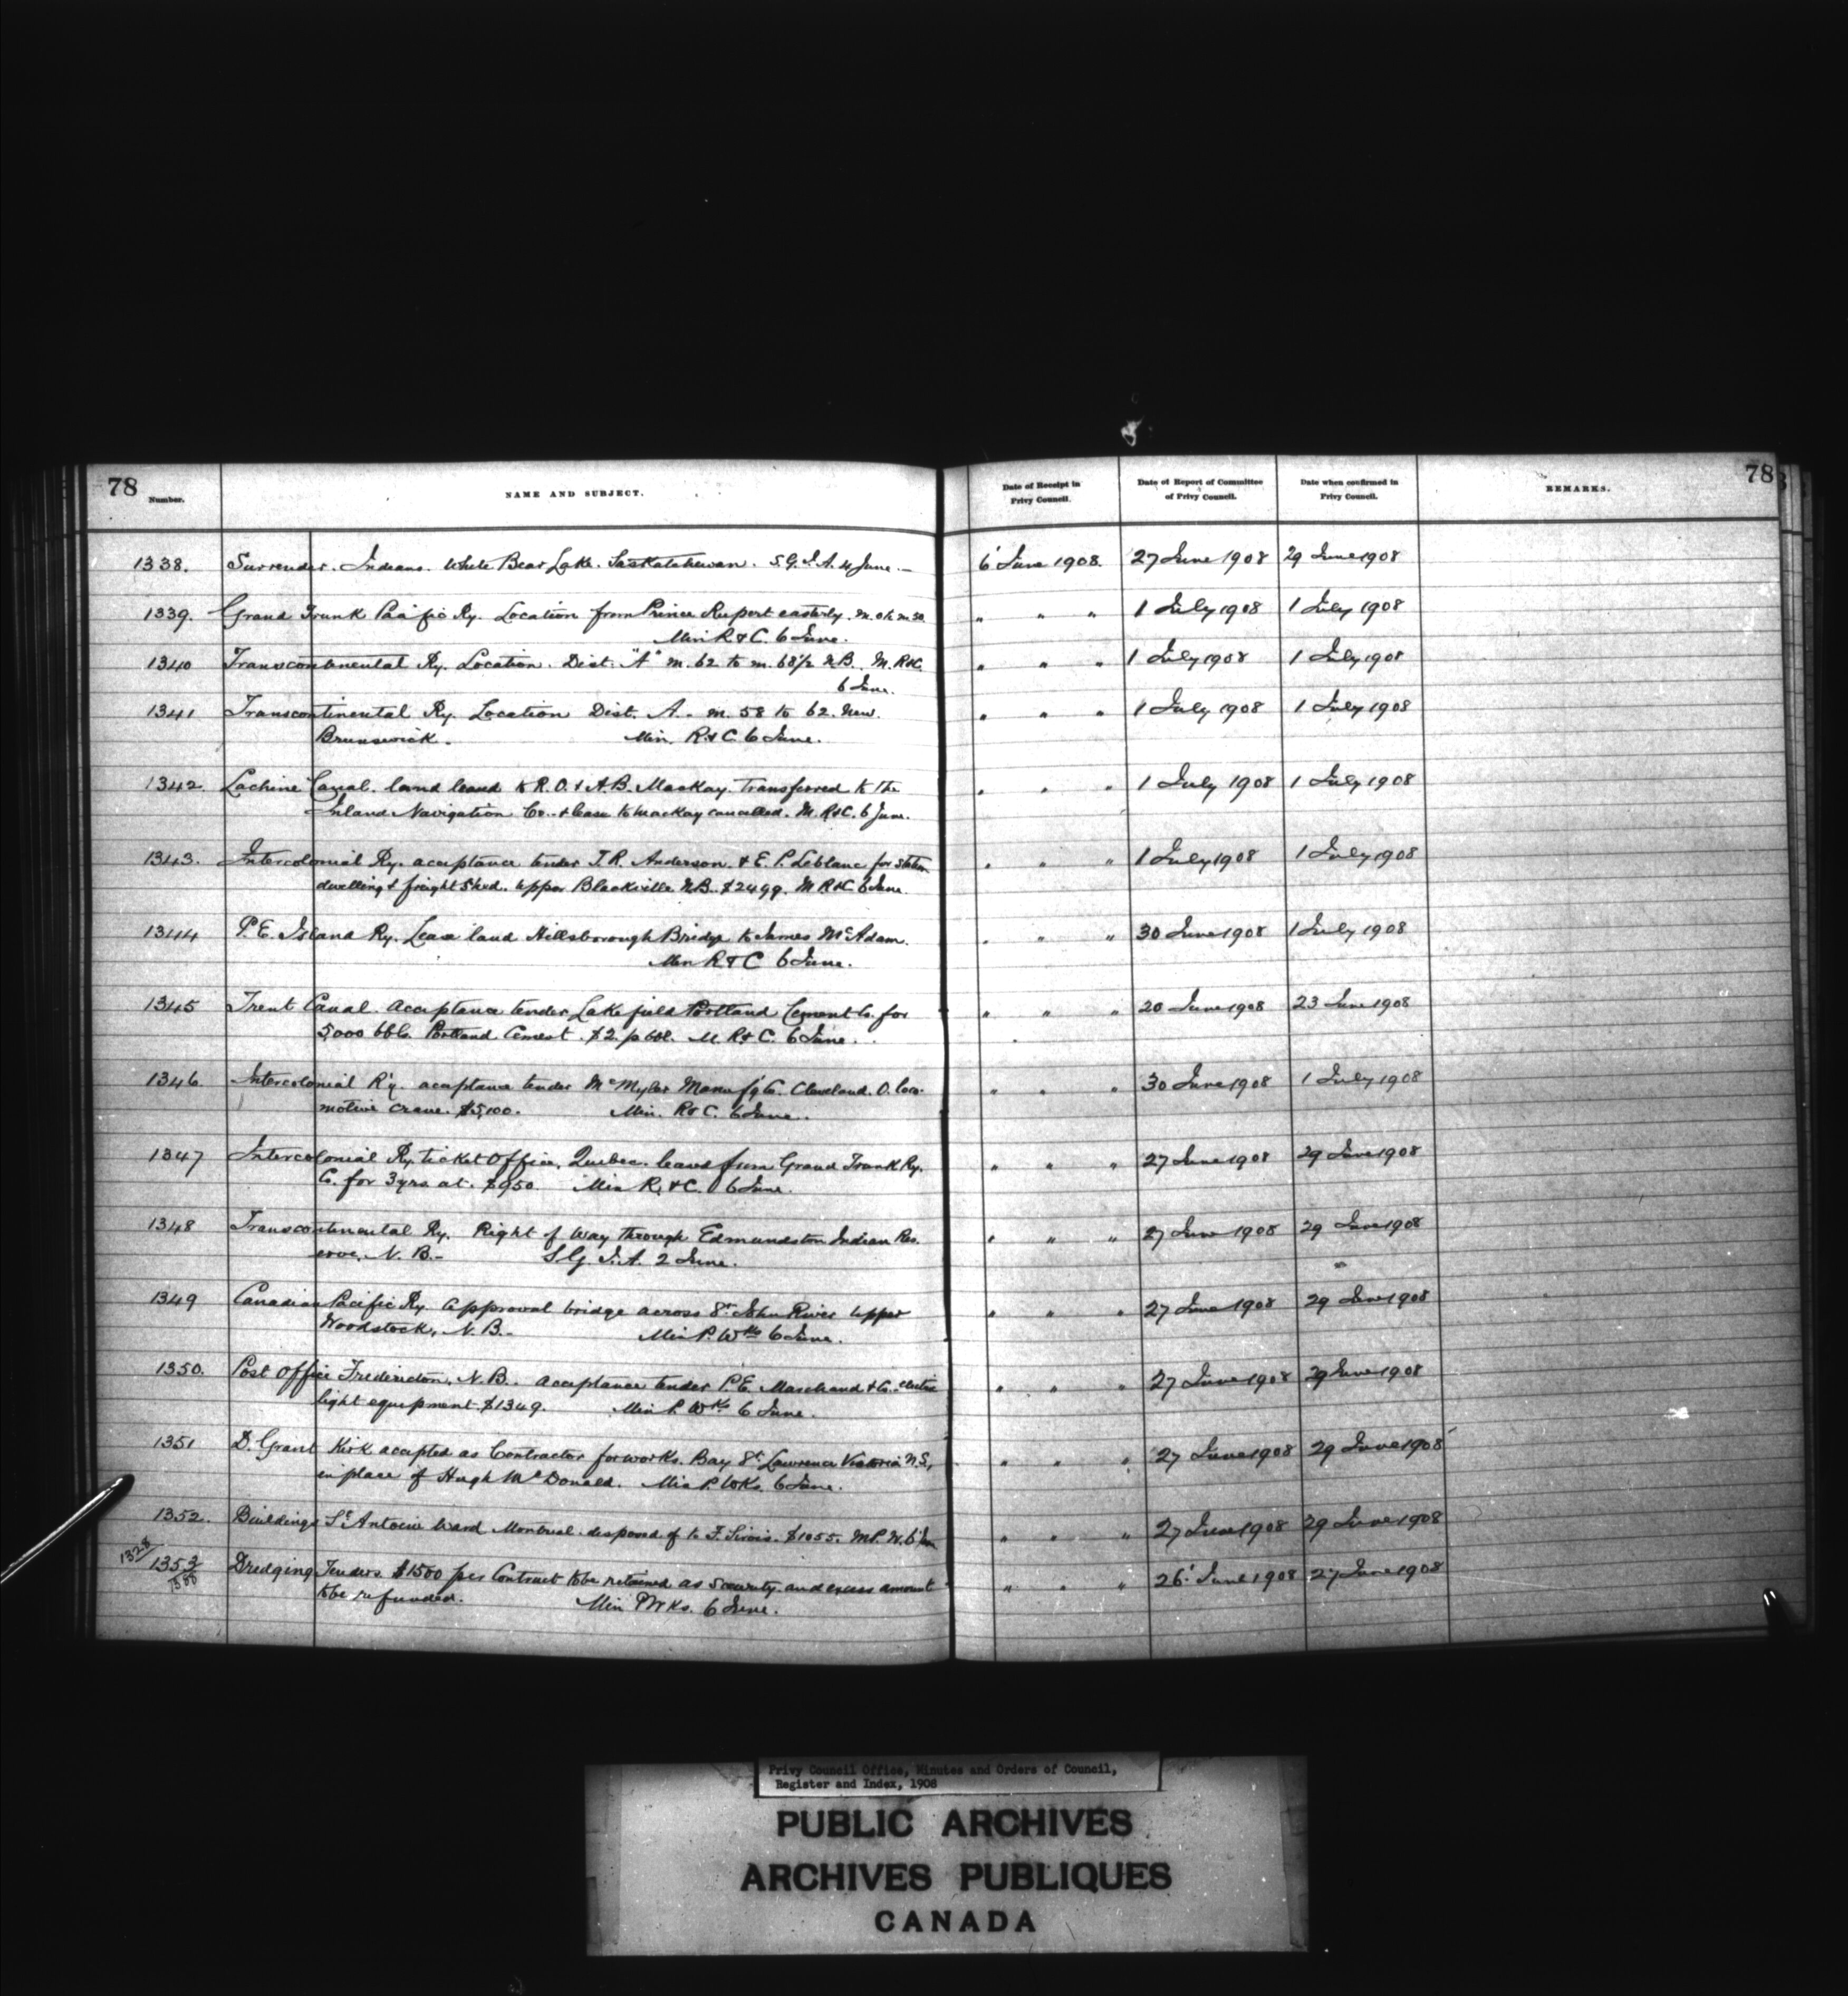 78 Number. NAME AND SUBJECT. Date of Receipt in Privy Council. Date of Report of Committee of Privy Council. Date when confirmed in Privy Council. REMARKS. 78
1338. Surrender. Indians. White Bear Lake. Saskatchewan. S.G.I.A. 4 June.- 6 June 1908. 27 June 1908 29 June 1908
1339. Grand Trunk Pacific Ry. Location from Prince Rupert easterly. m. 0 to m. 50. " " " 1 July 1908 1 July 1908
Min R & C. 6 June.
1340 Transcontinental Ry. Location. Dist. "A" m. 62 to m. 68½ N.B. M. R&C. " " " 1 July 1908 1 July 1908
6 June.
1341 Transcontinental Ry. Location Dist. A.- m. 58 to 62. New. " " " 1 July 1908 1 July 1908
Brunswick. - Min. R.& C. 6 June.
1342. Lachine Canal. land leased to R.O. & A.B. Mackay. Transferred to the " " " 1 July 1908 1 July 1908
Inland Navigation Co.- & lease to Mackay cancelled. M. R&C. 6 June.
1343. Intercolonial Ry. acceptance tender T.R. Anderson & E.P. Leblanc for station " " " 1 July 1908 1 July 1908
dwelling & freight shed. Upper Blackville N.B. $2499. M R&C 6 June.
1344 P.E. Island Ry. Lease land Hillsborough Bridge to James McAdam. " " " 30 June 1908 1 July 1908
Min R & C 6 June.
1345 Trent Canal. Acceptance tender Lakefield Portland Cement Co. for " " " 20 June 1908 23 June 1908
5,000 bbls. Portland Cement. $2. p bbl. M. R.& C. 6 June.
1346. Intercolonial R'y. acceptance tender McMyler Manuf'g Co. Cleveland. O. loco- " " " 30 June 1908 1 July 1908
motive crane. $5,100. Min. R & C. 6 June.
1347 Intercolonial Ry. ticket office, Quebec. leased from Grand Trunk Ry. " " " 27 June 1908 29 June 1908
Co. for 3 yrs. at. $950. Min R. & C. 6 June.
1348 Transcontinental Ry. Right of Way through Edmundston Indian Res- " " " 27 June 1908 29 June 1908
erve, N. B.- S.G. I.A. 2 June.
1349 Canadian Pacific Ry. Approval bridge across St. John River Upper " " " 27 June 1908 29 June 1908
Woodstock, N.B.- Min P. Wks 6 June.
1350. Post Office Fredericton, N.B. Acceptance tender P.E. Marchand & Co. electric " " " 27 June 1908 29 June 1908
light equipment $1349. Min P. Wks 6 June.
1351 D. Grant Kirk accepted as Contractor for works. Bay St. Lawrence Victoria N.S., " " " 27 June 1908 29 June 1908
in place of Hugh McDonald. Min P. Wks. 6 June.
1352. Buildings St. Antoine Ward Montreal. disposed of to F. Sirois. $1055. M.P.W. 6 June " " " 27 June 1908 29 June 1908
1328/
1353 Dredging Tenders. $1500 per Contract to be retained as security and excess amount " " " 26 June 1908 27 June 1908
to be refunded. Min P Wks. 6 June.
Privy Council Office, Minutes and Orders of Council,
Register and Index, 1908
PUBLIC ARCHIVES
ARCHIVES PUBLIQUES
CANADA